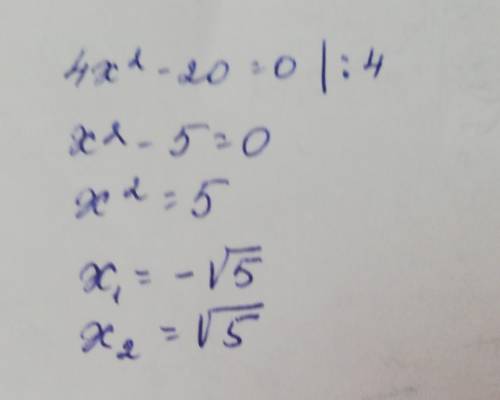 4x² - 20 = 0 | : 4
x² - 5 = 0
x² = 5
x₁ = -√5
x₂ = √5